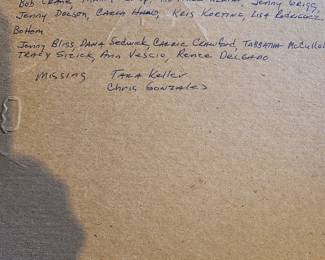 Bob Jenny Grigg,
Jenny Dolson, Carla Hard, Kris Korting, Lisa Rodriguez
Bottom
Jenny Bliss, Dana Sedwick, Carrie Crawford, Tabbatha McCulloh
Tracy Sizick, Ann Vescio, Renee Delgado
Missing Tara Keller
Chris Gonzales